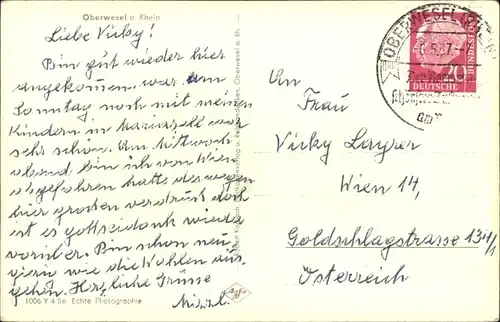 Oberwesel a. Rhein
Liebe Vicky!
Bin gut wieder hier
angekommen. war am
Sonntag noch mit meinen
Kindern in Mariazell war
sehr schön. Am Mittwoch
abend bin ich von Wien
abgefahren hatte deswegen
hier großen verdruß doch
ist es gottseidank wieder
vorüber. Bin schon neu-
gierig wie die Wahlen aus-
gehen. Herzliche Grüsse
Mizzl.
1006 Y 4 Se Echte Photographie
OBERWESEL
6.5.57
20
DEUTSCHE
BUNDESPOST
An
Frau
Vicky Layrer
Wien 14,
Goldschlagstrasse 134/1
Österreich